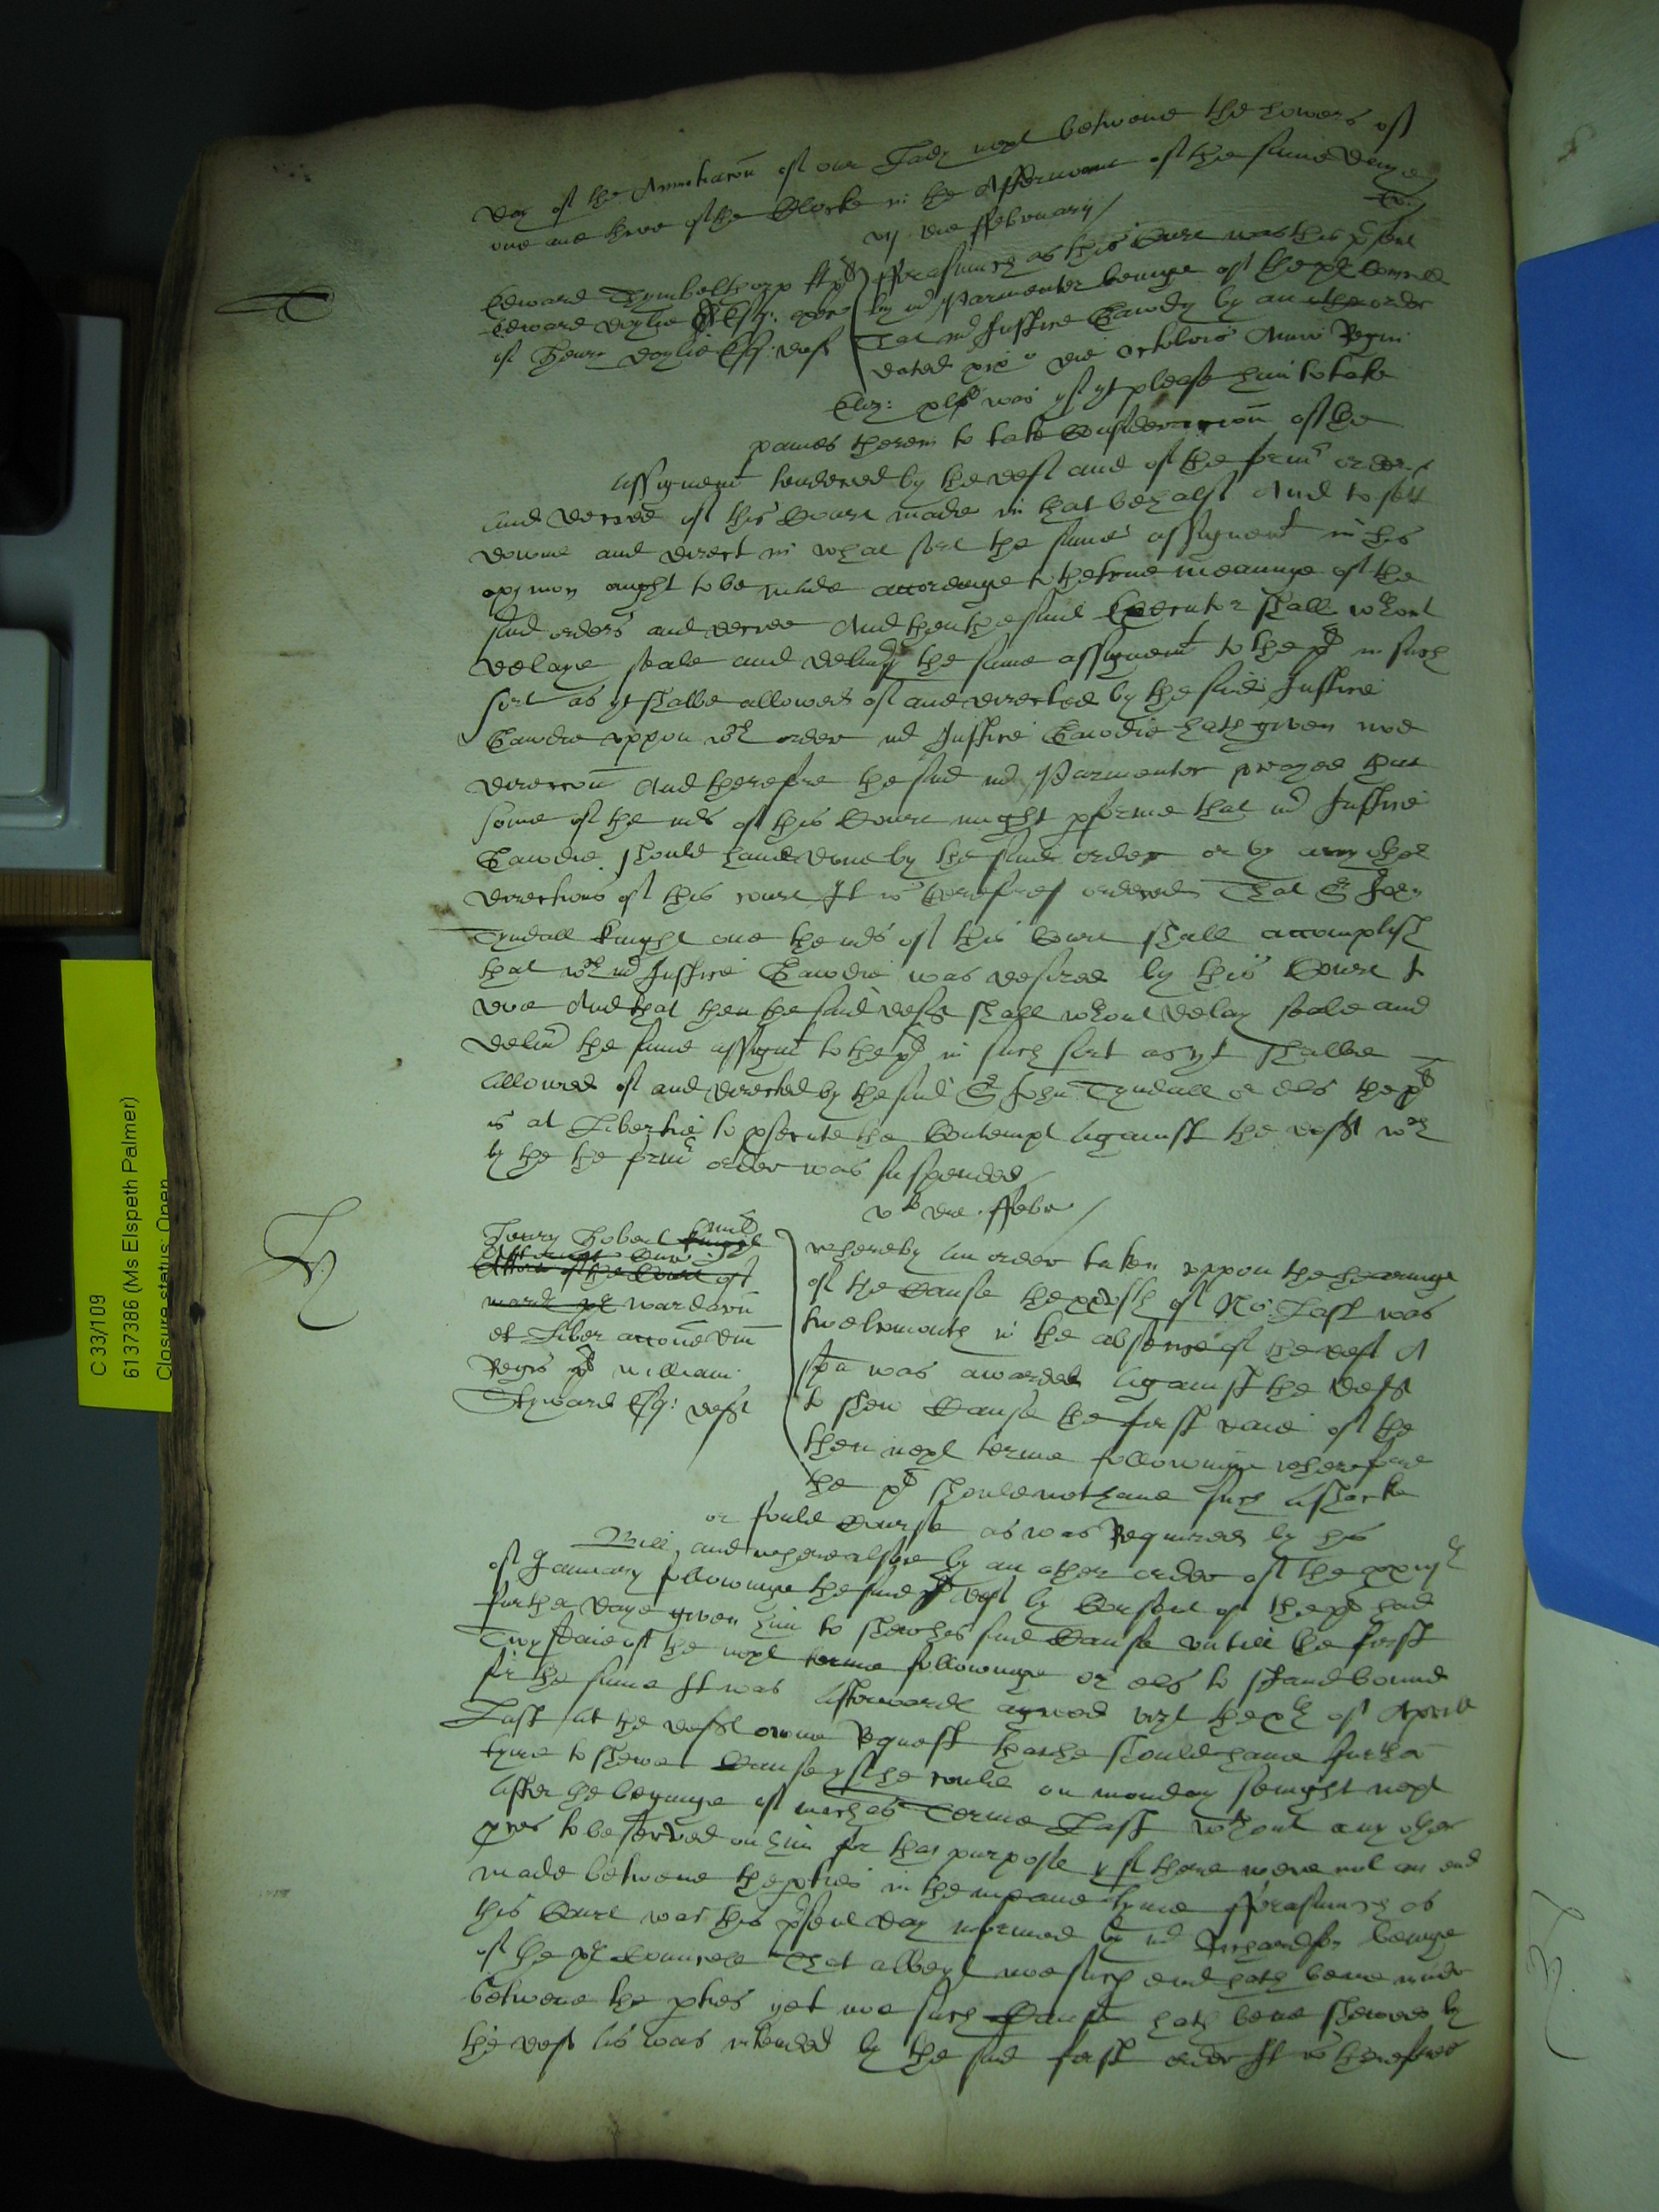 day of the Annuntiacōn of our Lady next betwene the howers of
one and three of the Clocke in the Afternoone of the same daye
vij die ffebruarij
T
Edward Thymbelthorp plt
Edward doylie Esq: exēr
of Henry doylie Esq: deft
fforasmuch as this Court was this p̄sent
by mr Parmenter beinge of the plt Councell
That mr Justice Gawdy by an order
dated primo die Octobris Anno Regni
Eliz: was yf yt please him to take
paines therein to take Consideracōn of the
assignemt tendered by the deft and of the formr orders
and decree of this Court made in that behalf And to sett
downe and direct in what sort the same assignemt in his
opynion ought to be made accordinge to the true meaninge of the
said orders and decree And then the said Executor shall wthout
delaye seale and deliver the same assignemt to the plt in such
sort as yt shalbe allowed of and directed by the said Justice
Gawdie uppon wch order mr Justice Gawdie hath given noe
direccōn And therefore the said mr Parmenter prayed that
some of the mrs of this Court might p̱forme that mr Justice
Gawdie should have done by the said order or by any other
directions of this court It is therefore ordered That Sr John
Tyndall knight one the mrs of this Court shall accomplish
that wch mr Justice Gawdie was desired by this Court to
doe And that then the said defts shall wthout delay seale and
deliv̄ the same assignmt to the plt in such sort as yt shalbe
allowed of and directed by the said Sr John Tyndall or els the plt
is at Libertie to p̱secute the Contempt against the defts wch
by the the formr order was suspended
vto die ffebr
H
Henry Hobert knight
Attorney
Attorn of the Court of
wards plt wardorū
et Liber acconē dni
Regis plt William
Thyward Esq: deft
whereby an order taken uppon the hearinge
of the Cause the of No: Last was
twelvmonth in the absence of the deft A
spā was awarded against the deft
to shew Cause the first daie of the
then next terme followinge wherefore
the plt should not have such
or should as was Required by his
Bill, and where alsoe by an other order of the
of January followinge the said deft by Consent of the plt had
further daye given him to shew his said Cause untill the first
daie of the next terme followinge or els to stand bound
for the same It was afterwards agreed vizt the of Aprill
Last At the defts owne Request that he should have further
tyme to shewe Cause yf he could on monday senight next
after the begininge of michas Terme Last wthout any other
pces to be served on him for that purpose yf there were not an end
made betwene the p̱ties in the meane tyme fforasmuch as
this Court was this p̄sent day informed by mr Richardson beinge
of the plt Councell That albeyt noe such end hath bene made
betwene the p̱ties yet noe such Cause hath bene shewed by
the deft as was intended by the said first order It is therefore
C 33/109
6137386 (Ms Elspeth Palmer)
Closure status: Open